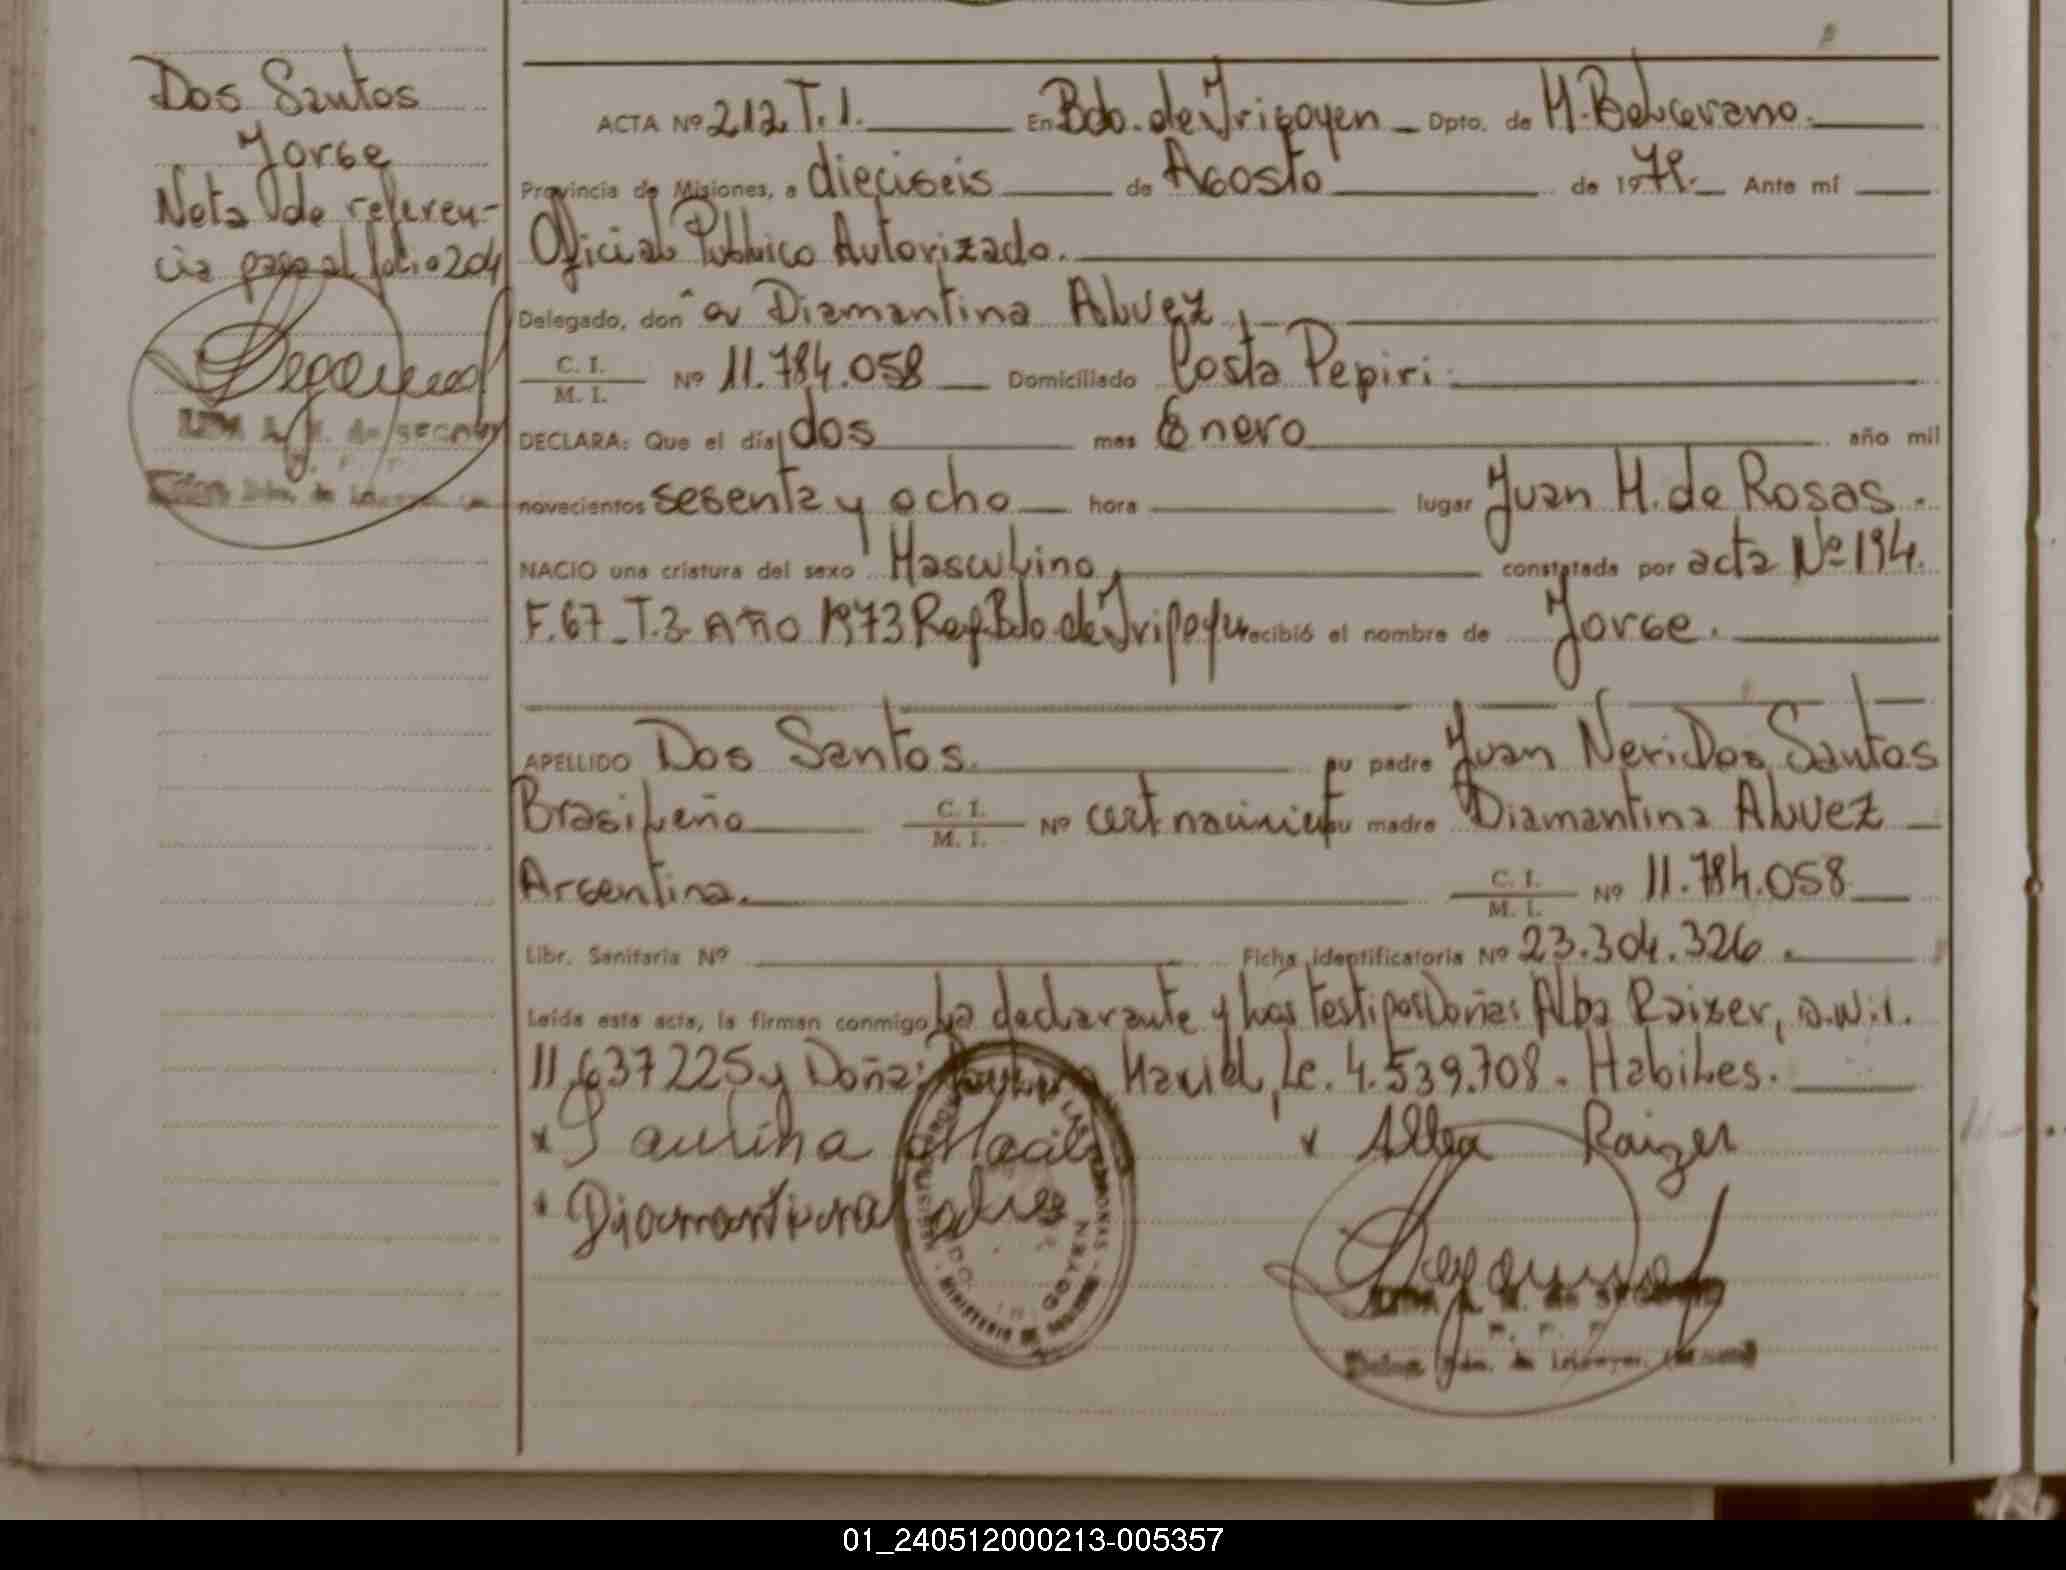 Dos Santos
Jorge
Nota de referen-
cia pasa al folio 204
ACTA Nº 212 T. 1. En Bdo. de Yrigoyen Dpto. de M. Belgrano.
Provincia de Misiones, a dieciseis de Agosto de 19 Ante mí
Oficial Publico Autorizado.
Delegado, don a Diamantina Alvez
C. I.
M. I. Nº 11.784.058 Domiciliado Costa Pepiri
DECLARA: Que el día dos mes Enero año mil
novecientos sesenta y ocho hora lugar Juan M. de Rosas.
NACIO una criatura del sexo Masculino, constatada por acta Nº 194.
F. 67 T. 3 Año 1973 Reg. Bdo. de Yrigoyen recibió el nombre de Jorge.
APELLIDO Dos Santos. su padre Juan Neri Dos Santos
Brasileño C. I.
M. I. Nº cert nacimiento su madre Diamantina Alvez
Argentina. C. I.
M. I. Nº 11.784.058
Libr. Sanitaria Nº Ficha identificatoria Nº 23.304.326.
Leída esta acta, la firman conmigo La declarante y los testigos Doña: Alba Raizer,
11.637225 y Doña: Maciel, Lc. 4.539.708. Habiles.
x Paulina Maciel x Alba Raizer
x Diamantina alvez
01_240512000213-005357